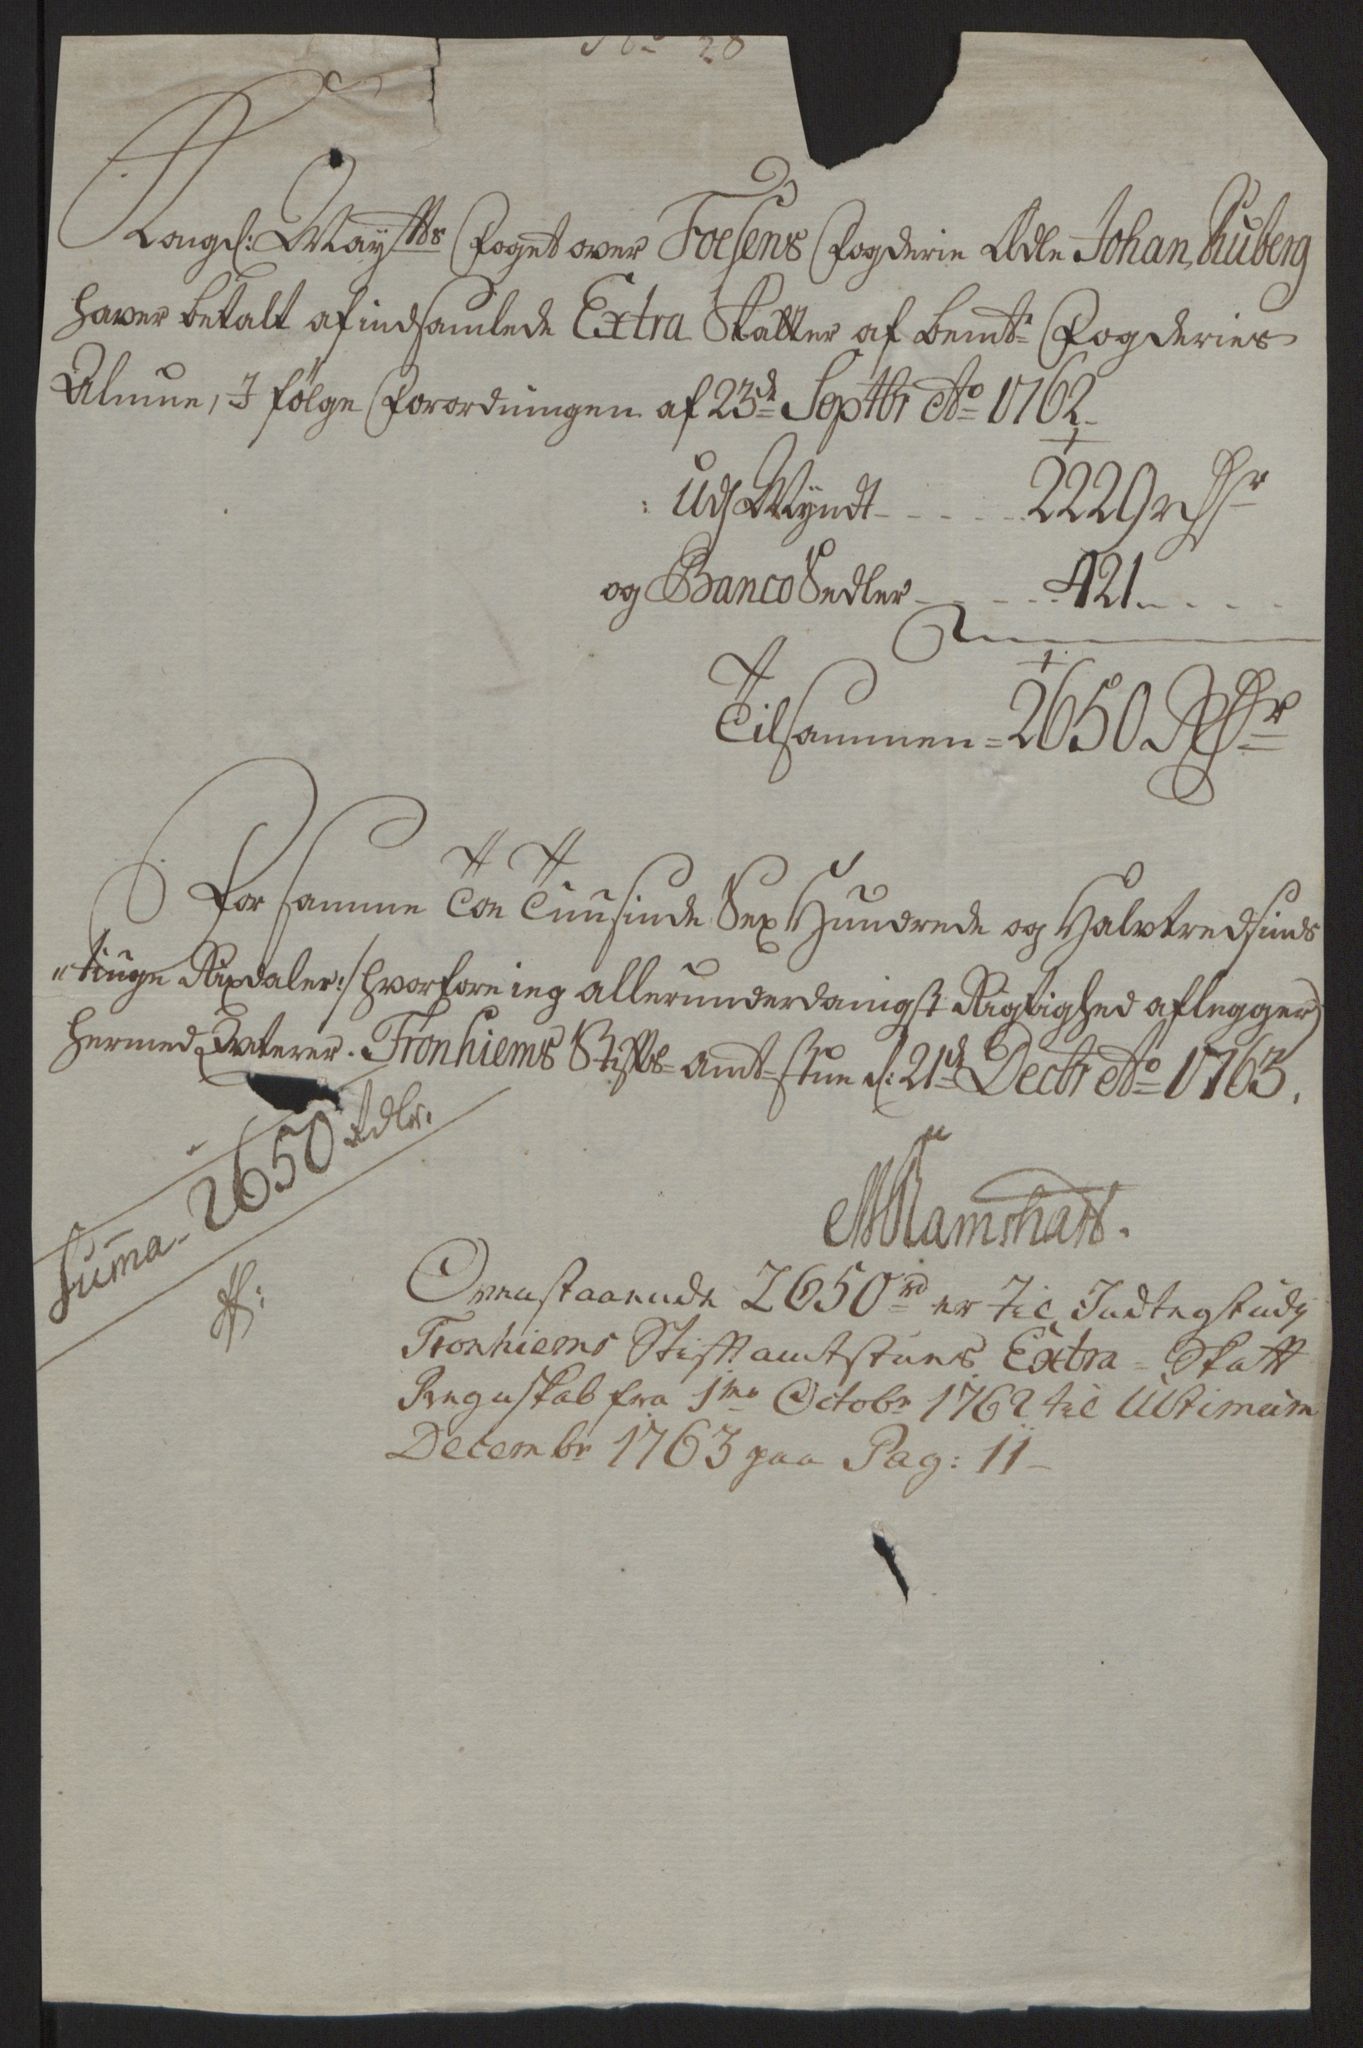 No 20
Kongel: Maysttts Foget over Foesens Fogderie Adle Johan Ruberg
haver betalt af indsamlede Extra Skatter af bemte Fogderies
Almue, I følge Forordningen af 23de Septbr Ao 1762
: Udj Myndt - - - - 2229 rdr
og Banco Sedler - - - - 421 - - - -
Tilsammen = 2650 Rdr
For samme Toe Tuusinde Sex Hundrede og Halvtredsinds
"tiuge Rixdaler :/ hvorfore ieg allerunderdanigst Rigtighed aflegger)
hermed Qviterer. Tronhiems Stiftts-amt-stue d: 21de Decbr Ao 1763.
MRamshart.
Summa - 2650 Rdlr.
Ovenstaaende 2650 rd er til Indtegt udj
Tronhiems Stifftamtstues Extra-Skatt
Regnskab fra 1mo Octobr 1762 til Ultimum
Decembr 1763 paa Pag: 11 -